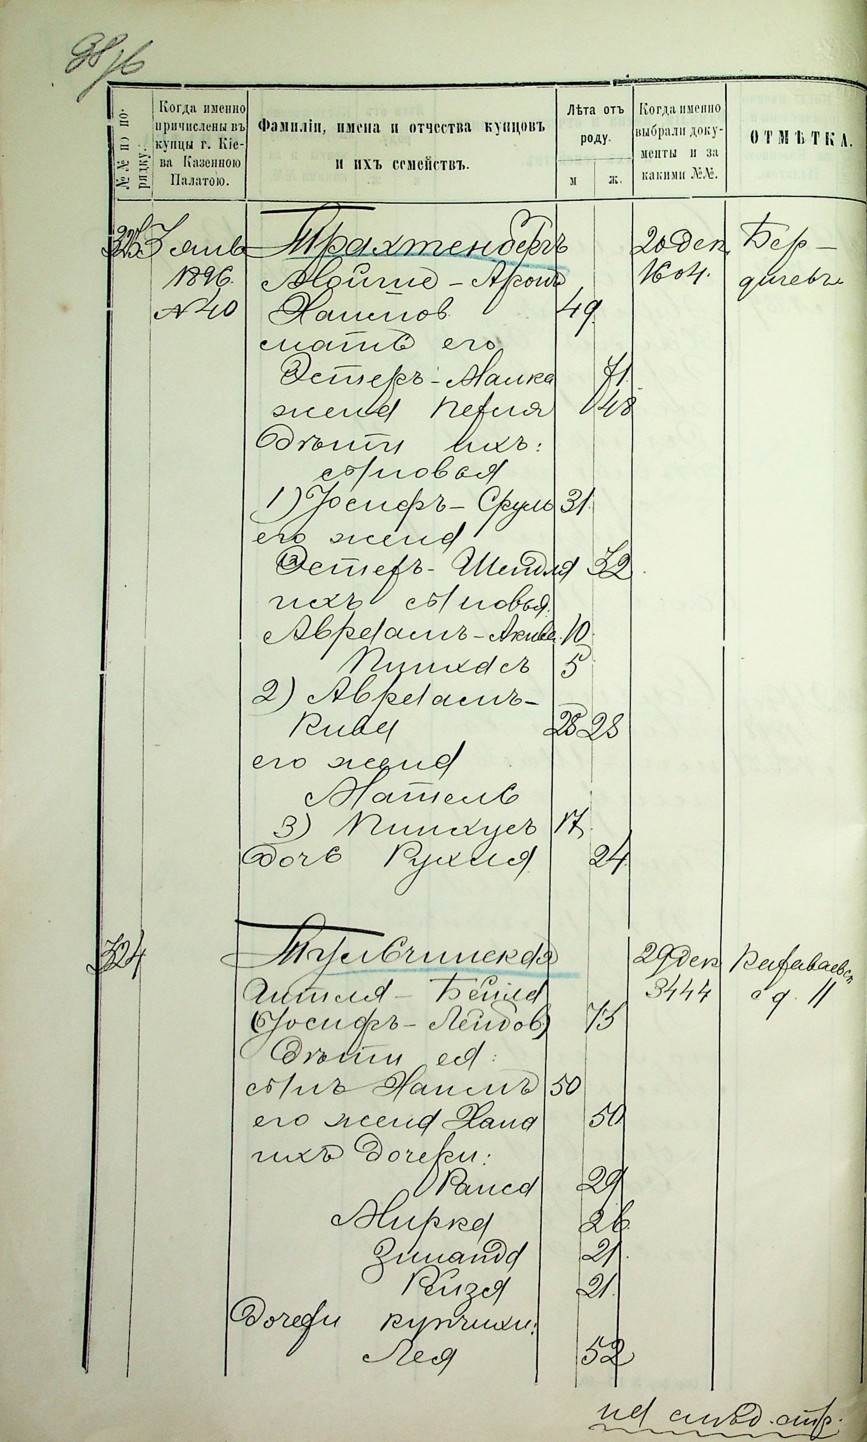 №№ по порядку.
Когда именно причислены въ купцы г. Кіева Казенною Палатою.
Фамиліи, имена и отчества купцовъ и ихъ семействъ.
Лѣта отъ роду.
м
ж.
Когда именно выбрали документы и за какими №№.
ОТМѢТКА.
323 3 янв Трахтенбергъ 20 дек. Бер-
1896. Мойше-Аронъ 1604. дичевъ
№40 Хаимов 49
мать его
Эстеръ-Малка 71
жена Перля 48
Дѣти ихъ:
сыновья
1) Іосифъ-Сруль 31
его жена
Эстеръ-Шейдля 32
ихъ сыновья
Авраамъ-Акива 10
Пинхасъ 5
2) Авраамъ-
Кива 28 28
его жена
Матель
3) Пинхусъ 17
Дочь Рухля 24
324 Тульчинская 29 дек
Гитля-Бейла 3444 11
(Іосифъ-Лейбов) 75
Дѣти ея:
сынъ Хаимъ 50
его жена Хана 50
ихъ дочери:
Раиса 29
Мирка 26
Зинаида 21
Рейзя 21
Дочери купчихи:
Лея 52
на слѣд. стр.